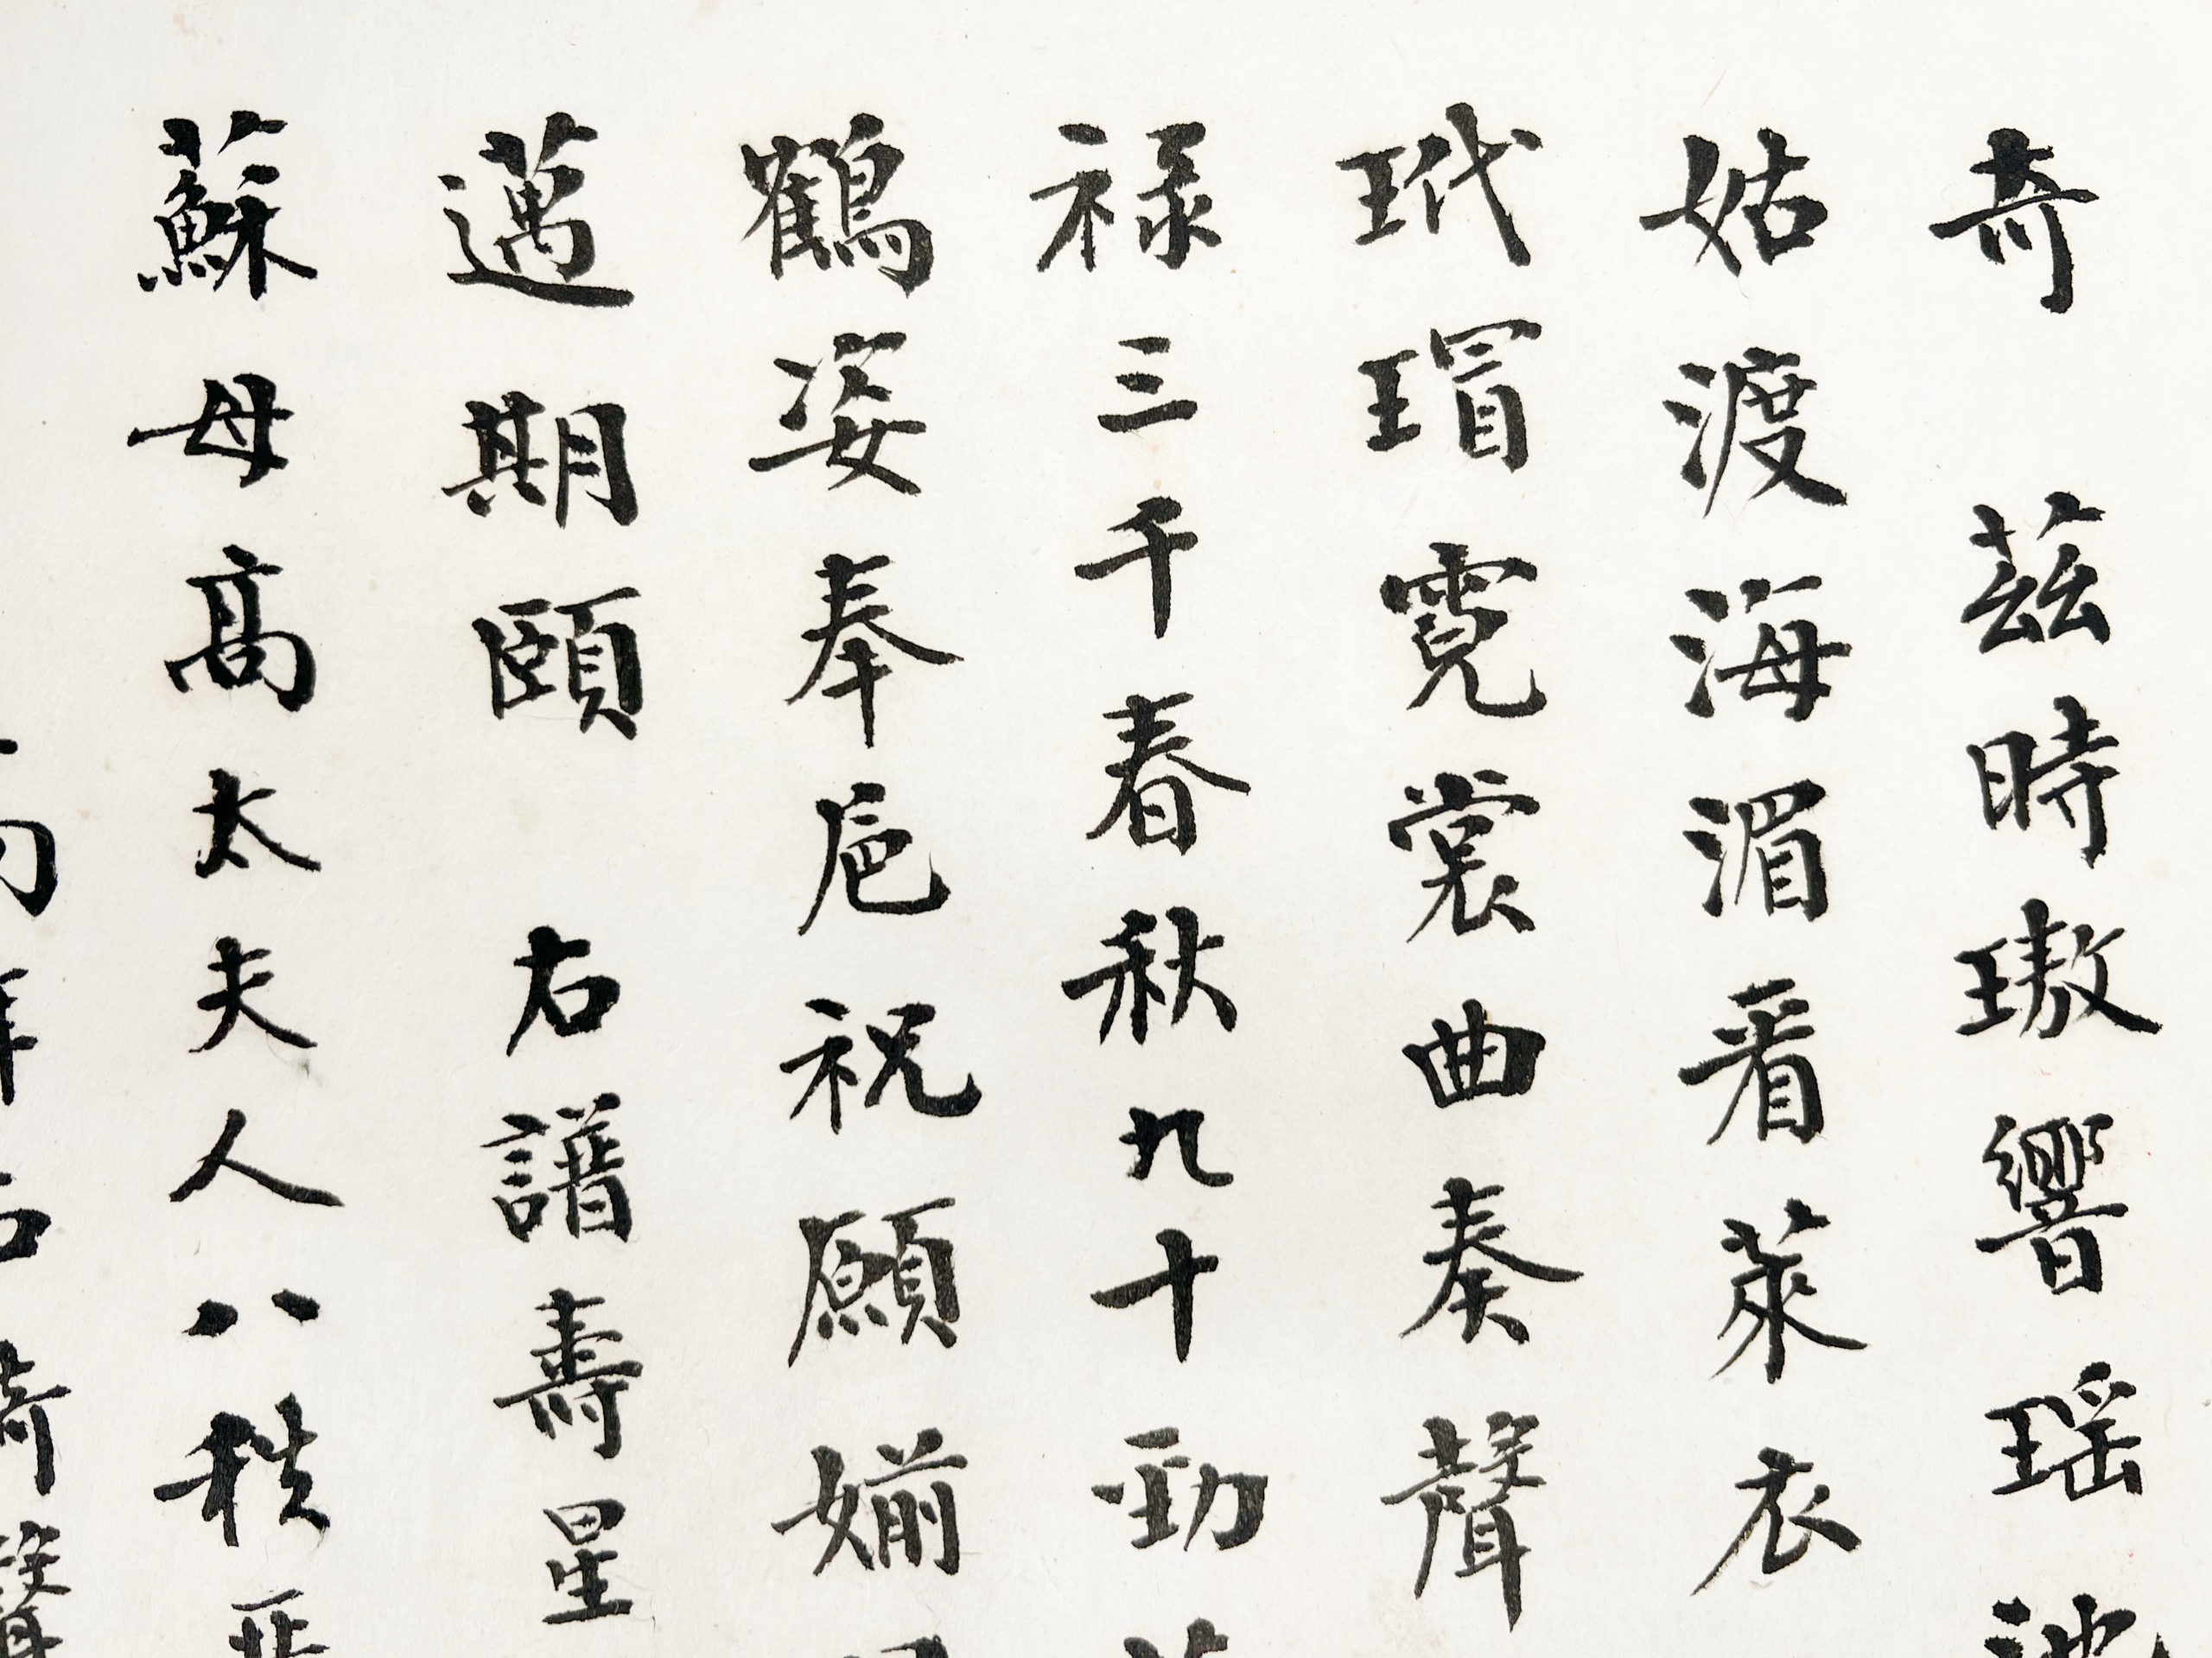 奇 茲時璈響瑤池
姑渡海湄看萊衣
玳瑁霓裳曲奏聲
祿三千春秋九十勁
鶴姿奉卮祝願媊
邁期頤 右譜壽星
蘇母高太夫人八秩